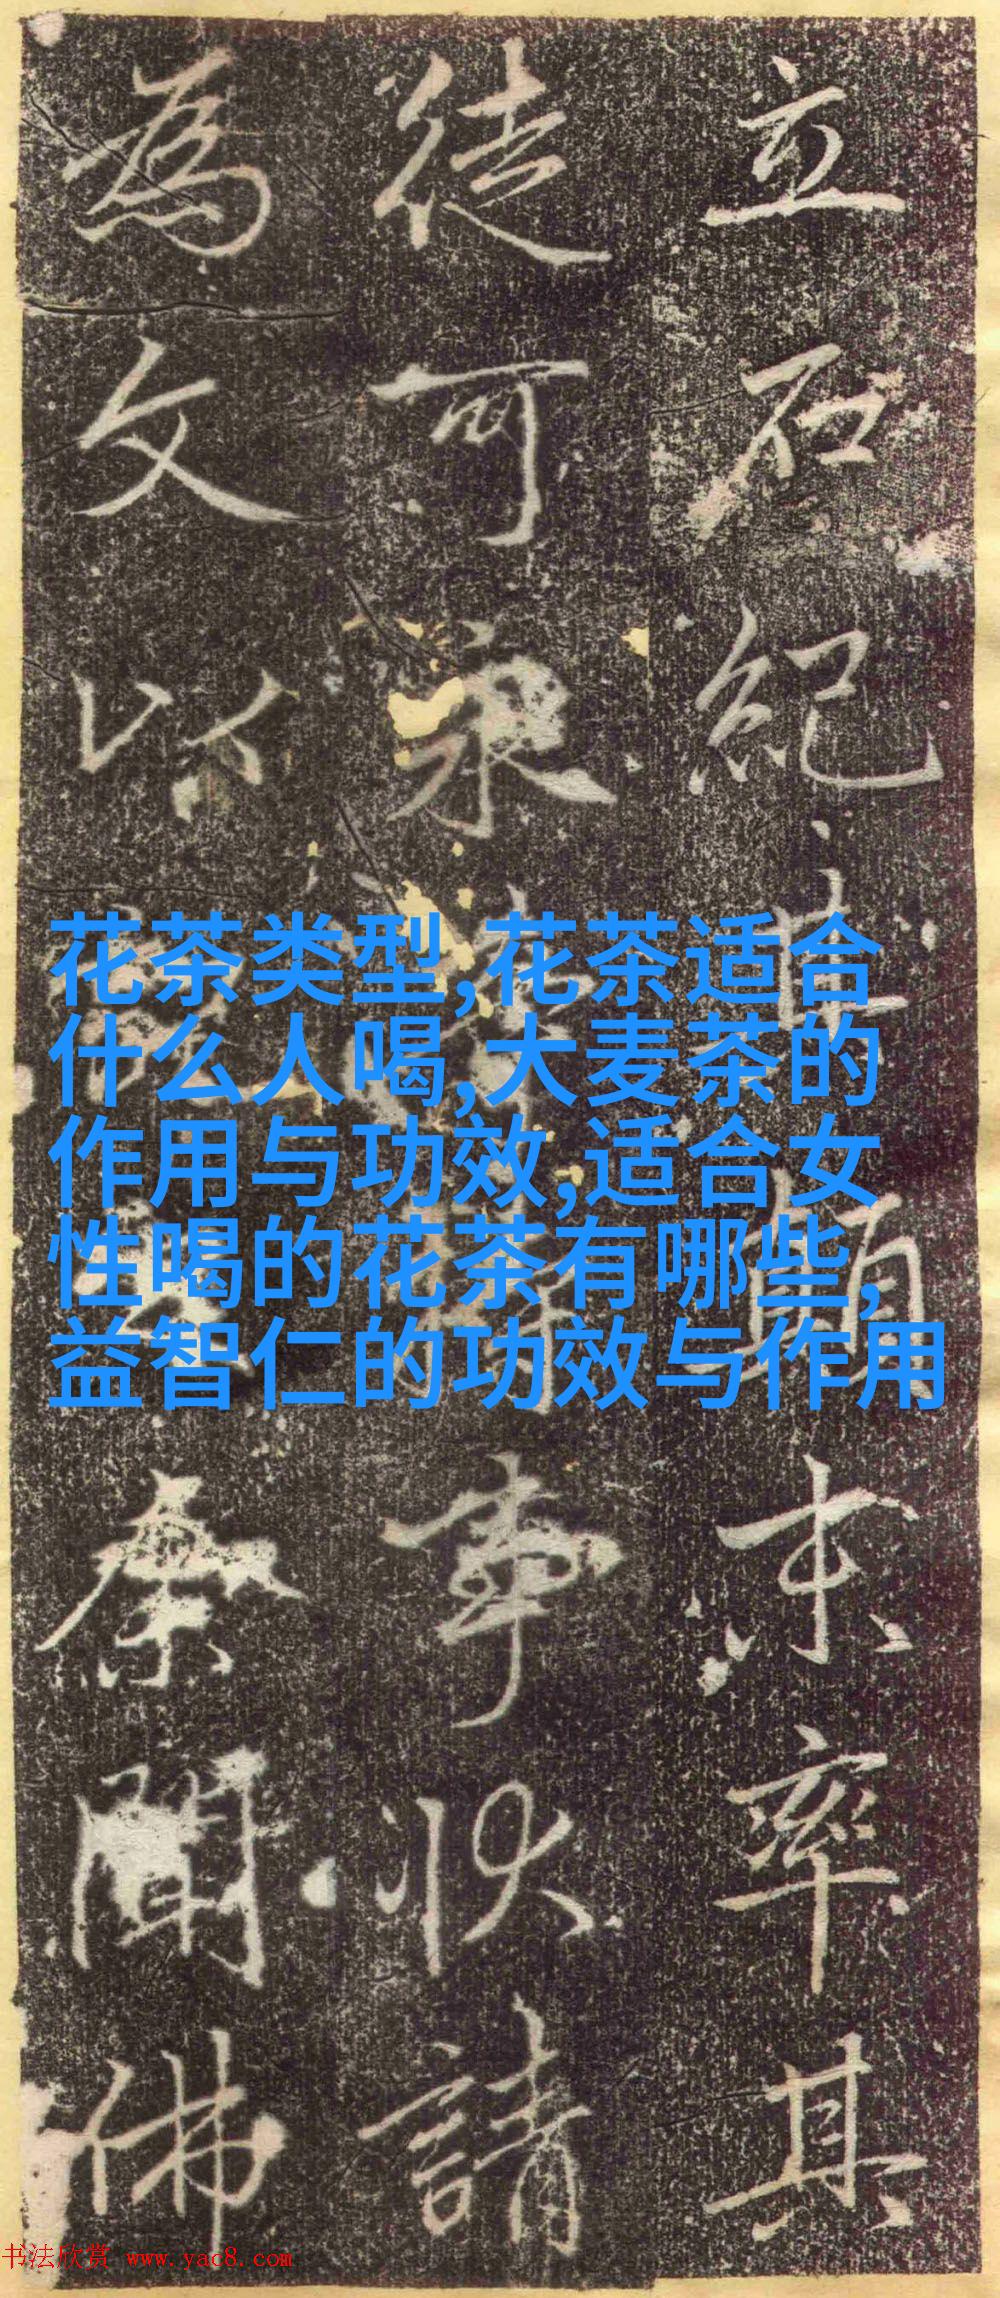 立石紀其率其
徒可事狀請
為文以奏聞佛
花茶类型,花茶适合
什么人喝,大麦茶的
作用与功效,适合女
性喝的花茶有哪些,
益智仁的功效与作用
书法欣赏 www.yac8.com